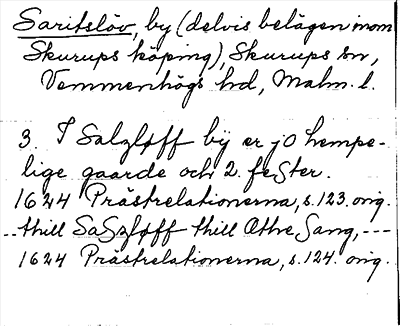 Saritslöv, by (delvis belägen inom
Skurups köping), Skurups sn,
Vemmenhögs hd, Malm. l.
3. I Salzløff bÿ er jO hempe-
lige gaarde och 2. feSter.
1624 Prästrelationerna, s. 123. orig.
--thill SaSzløff thill Othre Sang, ---
1624 Prästrelationerna, s. 124. orig.